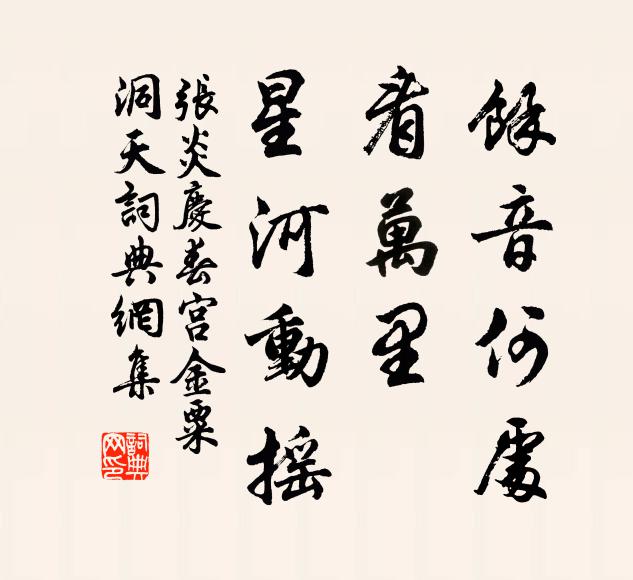 餘音何處
看萬里
星河動搖
張炎慶春宮金粟
洞天詞典網集
詞典網印